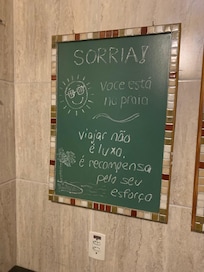 SORRIA!
Você está
na praia
viajar não
é luxo,
é recompensa
pelo seu
esforço